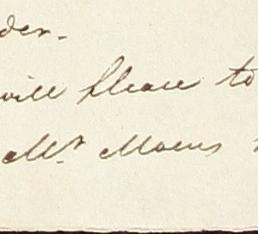 der.
will please to
Mr. Moens